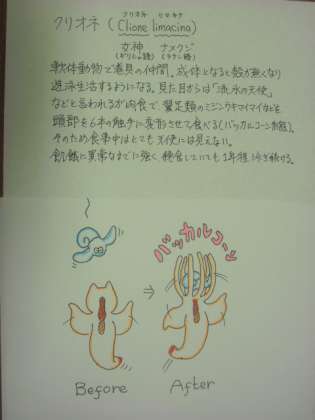 クリオネ リマキナ
クリオネ (Clione limacina)
女神 ナメクジ
(ギリシャ語) (ラテン語)
軟体動物で巻貝の仲間、成体となると殻が無くなり
遊泳生活するようになる。見た目からは「流氷の天使」
などと言われるが肉食で、翼足類のミジンウキマイマイなどを
頭部を6本の触手に変形させて食べる(バッカルコーン形態)。
そのため食事中はとても天使には見えない。
飢餓に異常なまでに強く絶食していても1年程
バッカルコーン
Before
After